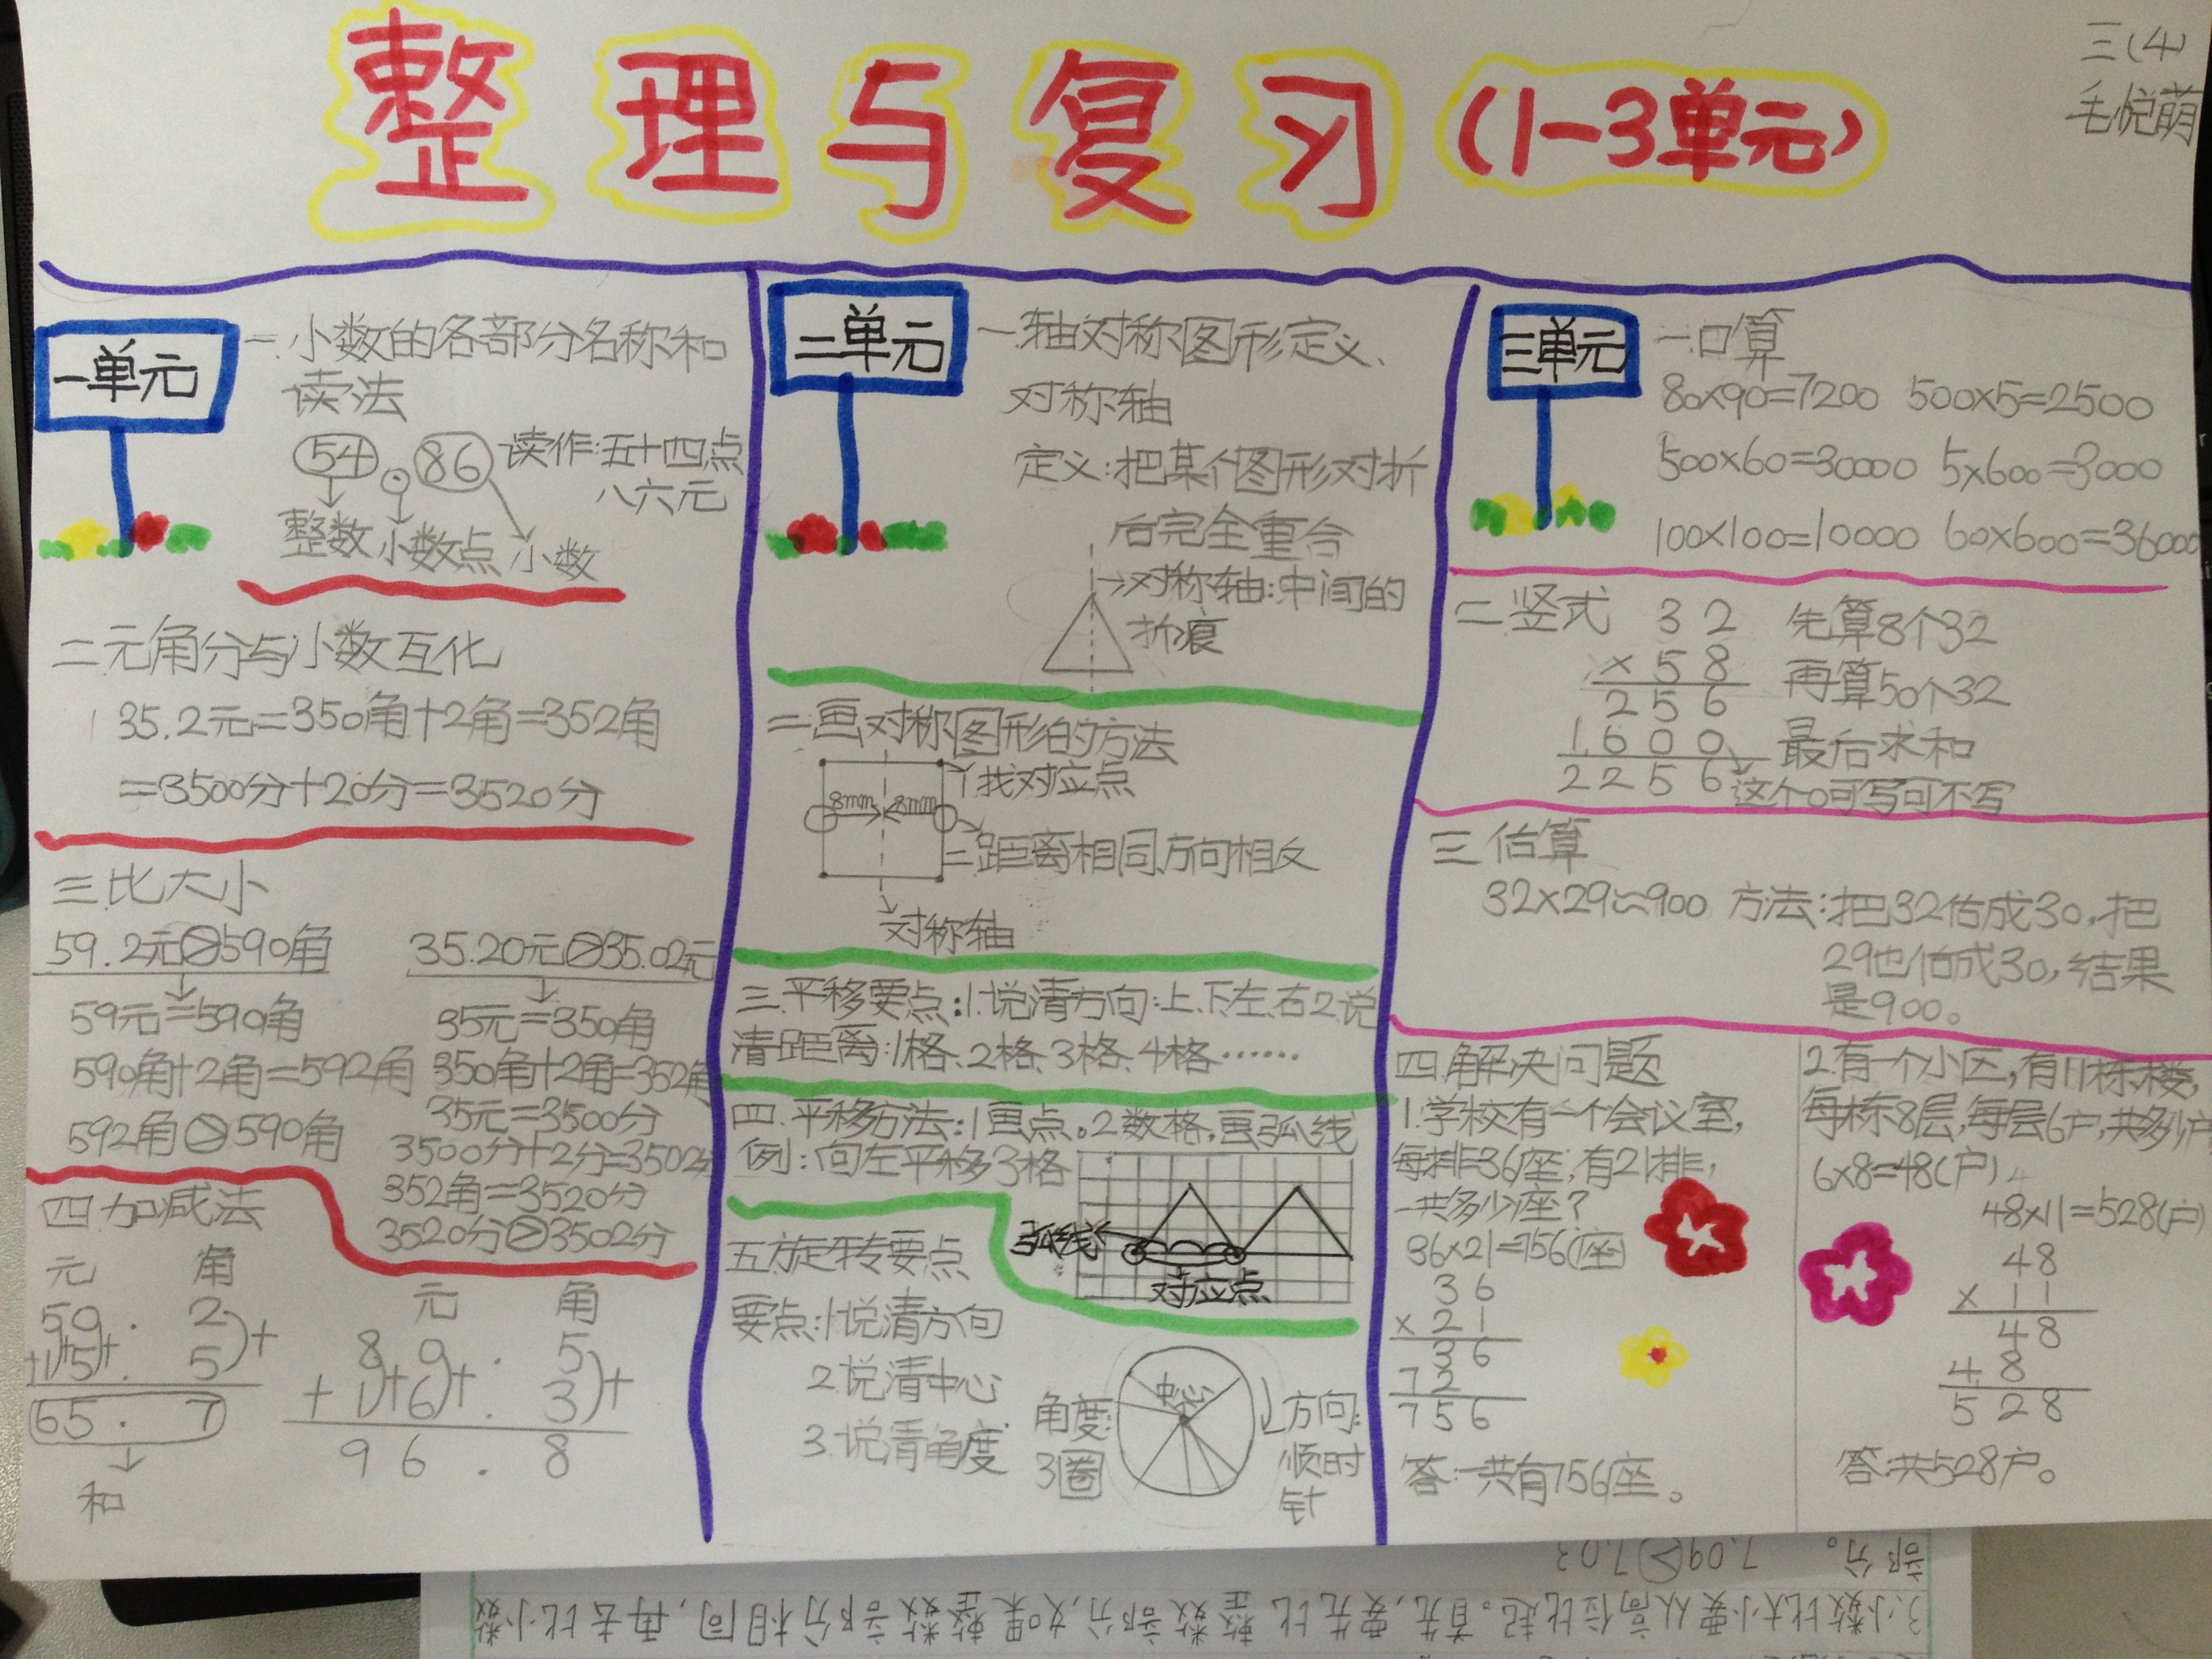 整理与复习(1-3单元)
三(4)
毛悦萌
一单元
一.小数的各部分名称和
读法
54.86 读作:五十四点
八六元
整数 小数点 小数
二元角分与小数互化
35.2元=350角+2角=352角
=3500分+20分=3520分
三比大小
59.2元>590角
59元=590角
590角+2角=592角
592角>590角
35.20元>35.02元
35元=350角
350角+2角=352角
35元=3500分
3500分+2分=3502分
352角=3520分
3520分>3502分
四加减法
元 角
59.2
+15.5
65.7
和
元 角
89.5
+1 6.3
96.8
二单元
一.轴对称图形定义、
对称轴
定义:把某个图形对折
后完全重合
对称轴:中间的
折痕
二画对称图形的方法
1找对应点
8mm 8mm
二距离相同方向相反
对称轴
三.平移要点:1.说清方向:上.下左.右2.说
清距离:1格、2格、3格、4格……
四.平移方法:1画点。2数格,画弧线
例:向左平移3格
弧线
对应点
五旋转要点
要点:1说清方向
2.说清中心
3.说清角度
中心
角度:
3圈
方向:
顺时
针
三单元
一口算
80×90=7200 500×5=2500
500×60=30000 5×600=3000
100×100=10000 60×600=36000
二竖式
32
×58
256
1600
2256
先算8个32
再算50个32
最后求和
这个0可写可不写
三估算
32×29≈900 方法:把32估成30,把
29也估成30,结果
是900。
四.解决问题
1.学校有一个会议室,
每排36座,有21排,
一共多少座?
36×21=756(座)
36
×21
36
72
756
答:一共有756座。
2.有一个小区,有11栋楼,
每栋8层,每层6户,共多少户
6×8=48(户)
48×11=528(户)
48
×11
48
48
528
答:共528户。
部分。 7.09>7.03
3.小数比大小要从高位比起。首先,要先比整数部分,如果整数部分相同,再去比小数